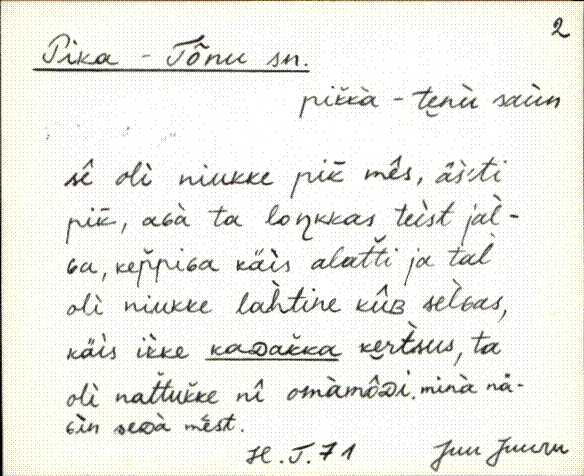 2
Pika - Tõnu sn.
pik̆kà - te̮nù saùn
sê olì niukke pik̄ mês, äs̀ti
pik̄, aʙà ta loŋkkas teìst jal̀-
ʙa, kep̆piʙa käìs alat̆ti ja tal̀
olì niukke lah̀tine kûʙ sèl̀ɢas,
käìs ìkke kaᴅak̆ka ke̮rt̀sus, ta
olì nat̆tuk̆ke nî omàmôᴅi. minà nä-
ɢìn seᴅà mêst.
H. T. 71 Juu Juuru